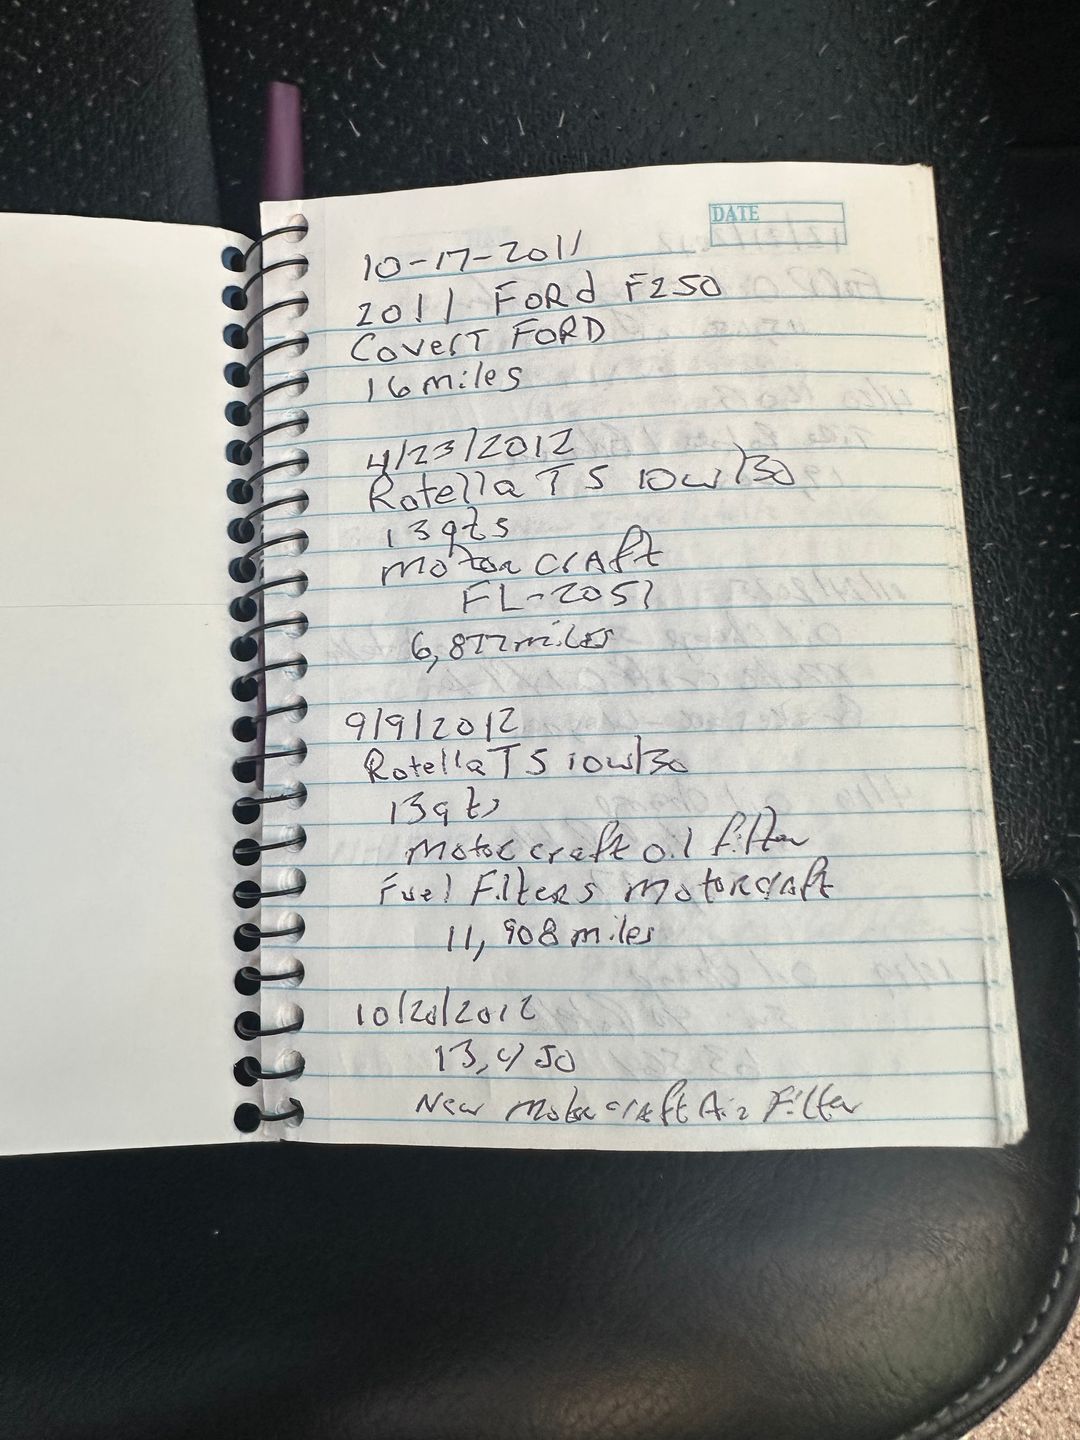 DATE
10-17-2011
2011 FoRd F250
CoverT FORD
16 miles
4/23/2012
Rotella T5 10w/30
13qts
motorcraft
FL-2051
6,877 miles
9/9/2012
Rotella T5 10w/30
13qts
Motorcraft oil filter
Fuel Filters motorcraft
11,908 miles
10/20/2012
13,450
New motorcraft Air Filter